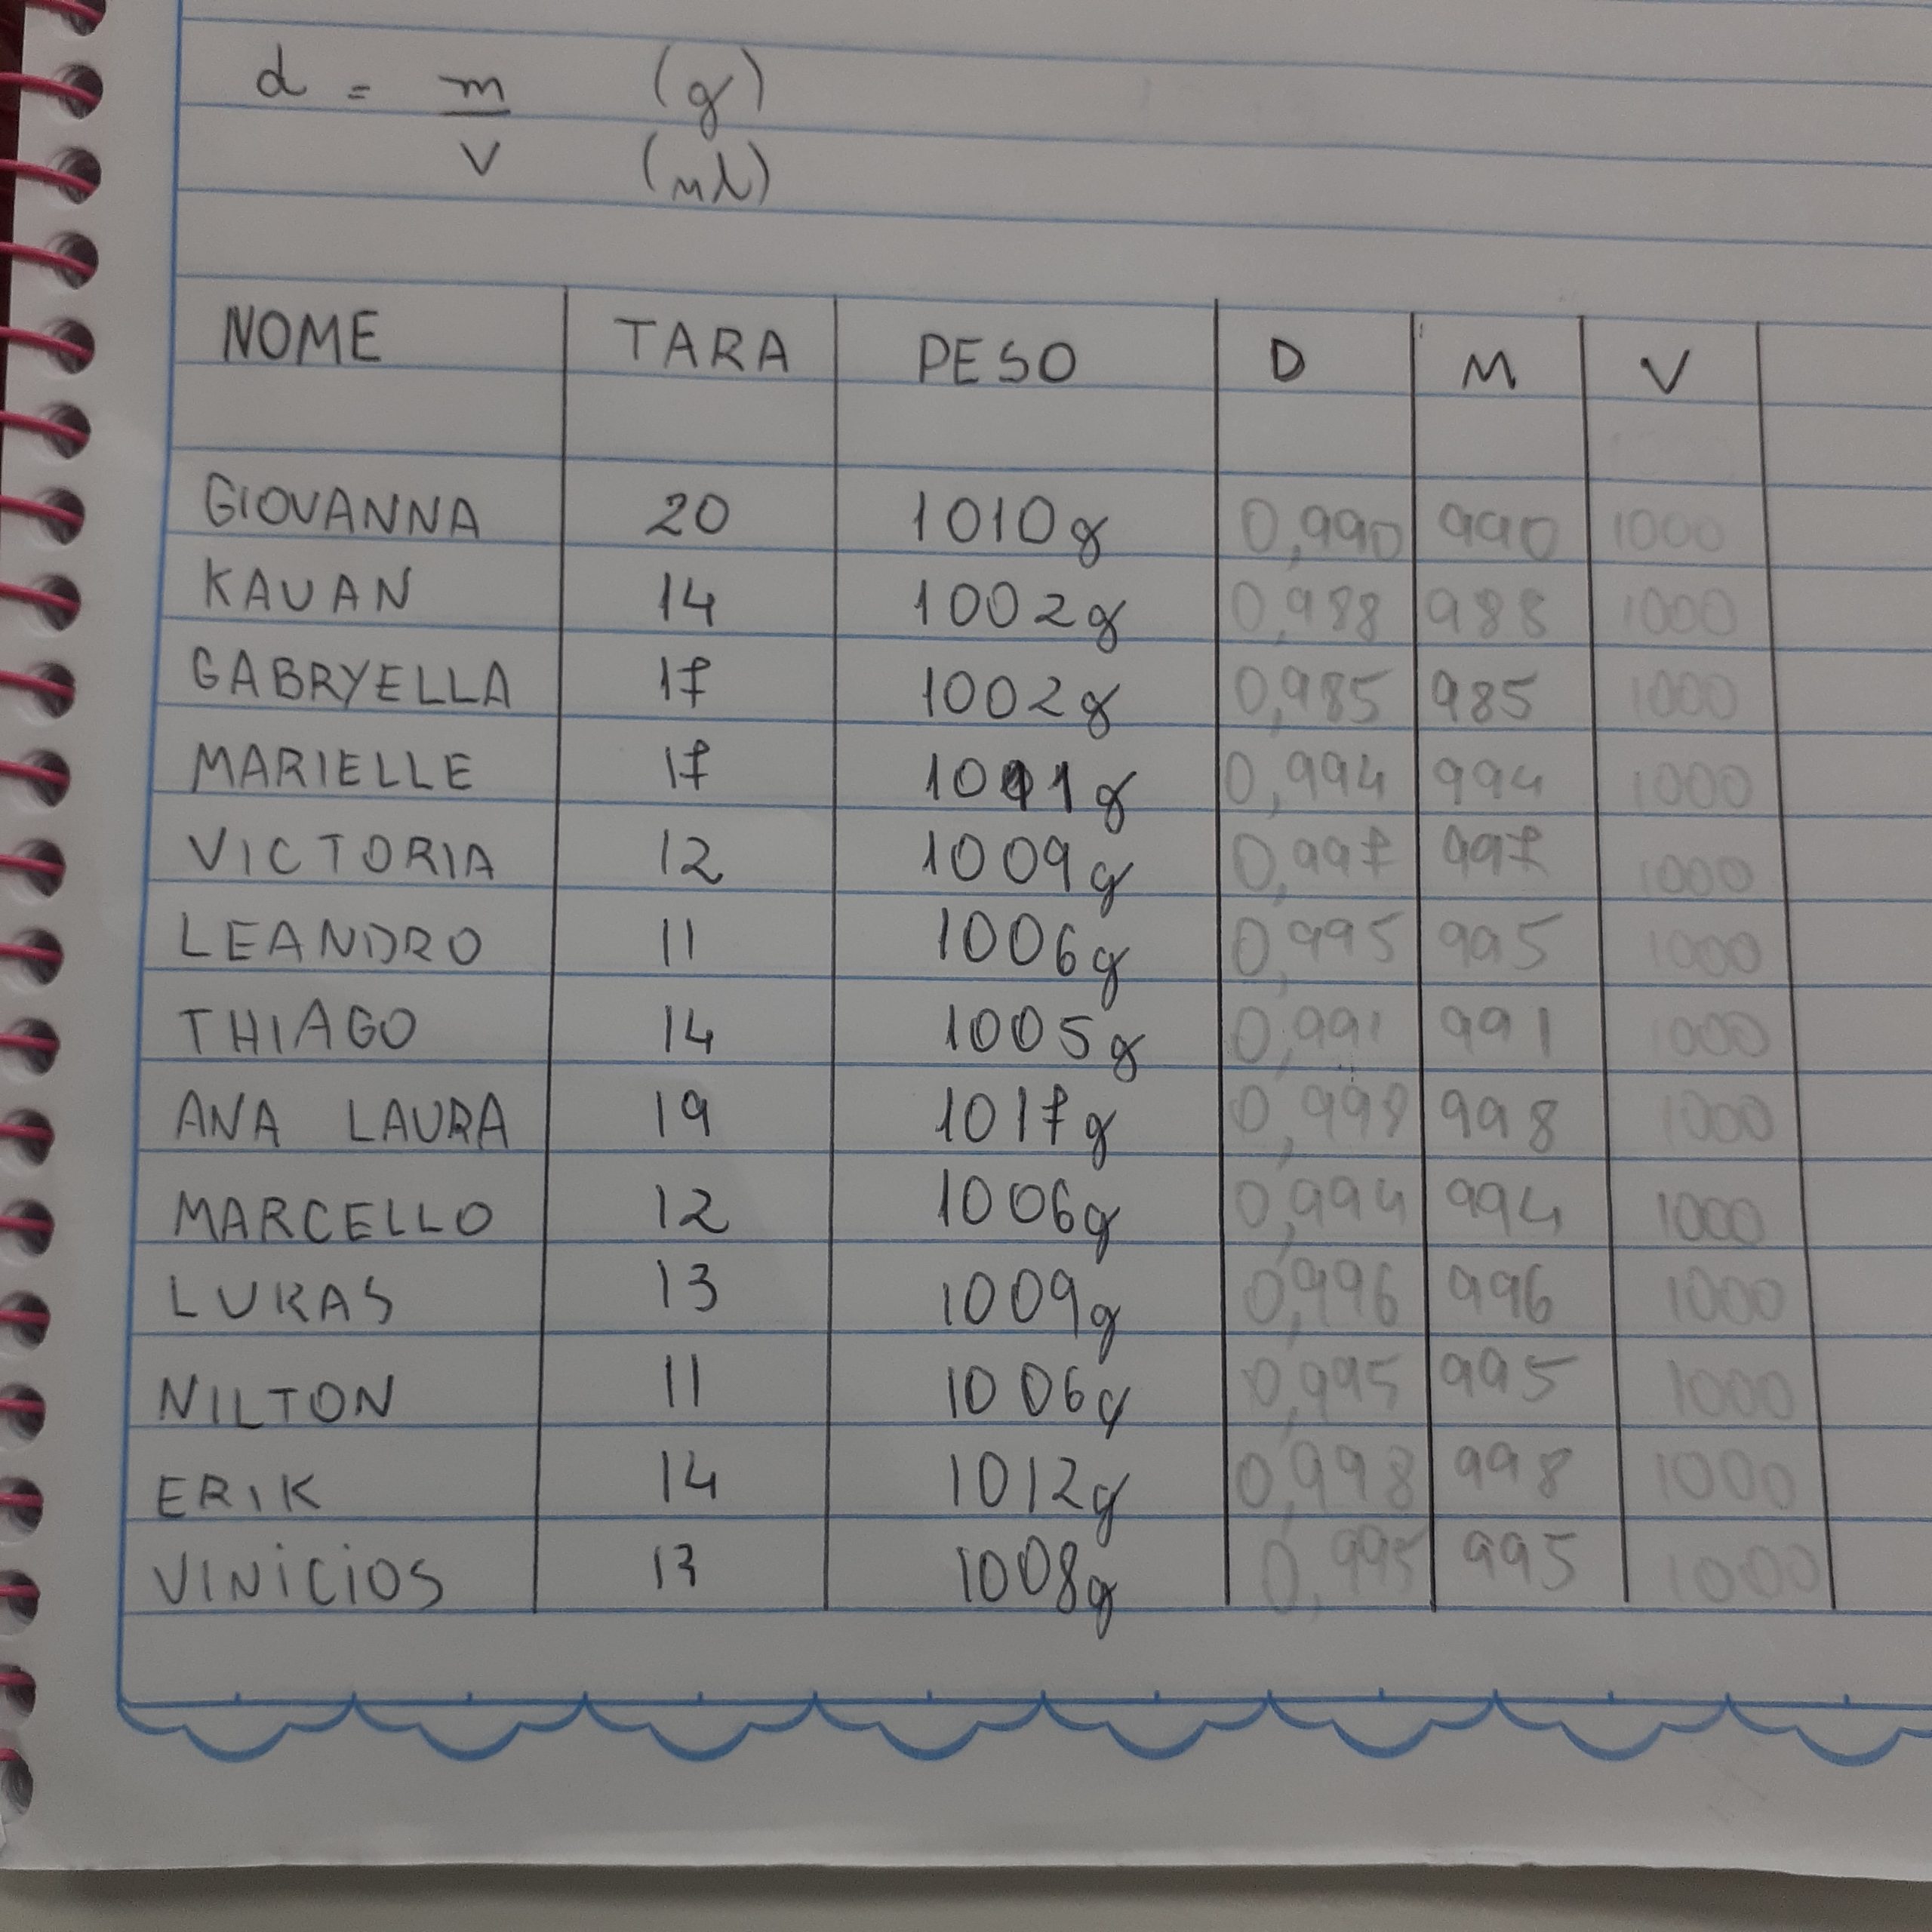 d = m (g)
v (ml)
NOME TARA PESO D M V
GIOVANNA 20 1010g 0,990 990 1000
KAUAN 14 1002g 0,988 988 1000
GABRYELLA 17 1002g 0,985 985 1000
MARIELLE 17 1011g 0,994 994 1000
VICTORIA 12 1009g 0,997 997 1000
LEANDRO 11 1006g 0,995 995 1000
THIAGO 14 1005g 0,991 991 1000
ANA LAURA 19 1017g 0,998 998 1000
MARCELLO 12 1006g 0,994 994 1000
LUKAS 13 1009g 0,996 996 1000
NILTON 11 1006g 0,995 995 1000
ERIK 14 1012g 0,998 998 1000
VINICIOS 13 1008g 0,995 995 1000